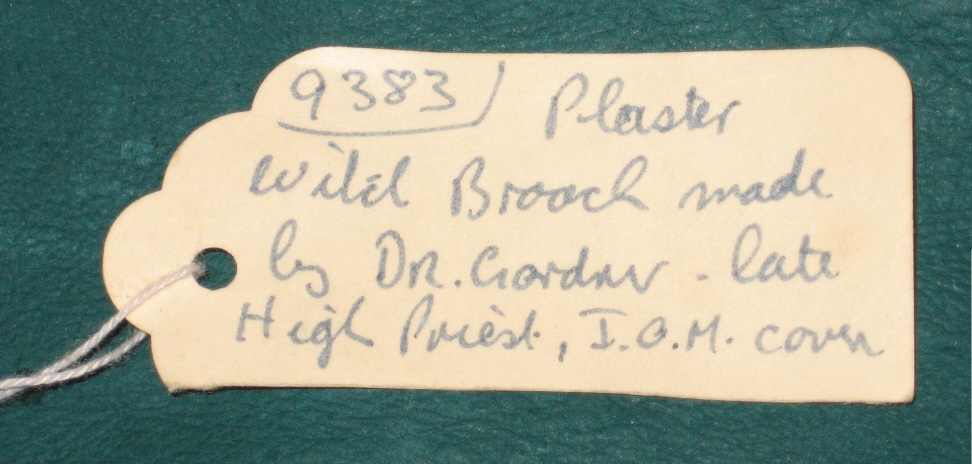 9383 Plaster
Witch Brooch made
by DR. Gardner - late
High Priest, I.O.M. coven